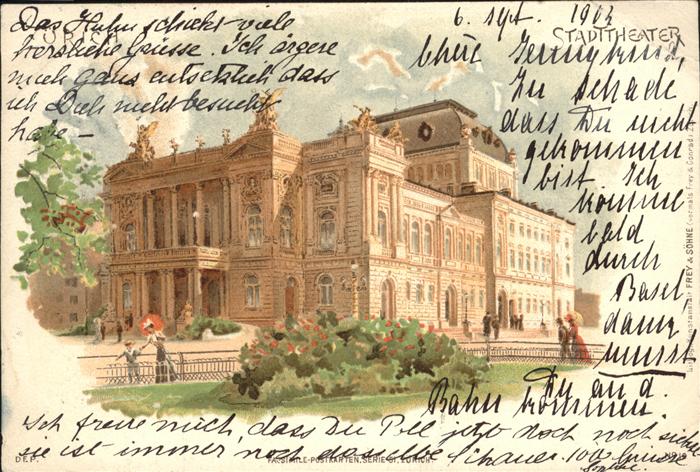 Das Huhn schickt viele
herzliche Grüsse. Ich ärgere
mich ganz entsetzlich dass
ich Dich nicht besucht
habe –
ZÜRICH
6. Sept. 1902
STADTTHEATER
Zu Schade
dass Du nicht
gekommen
bist. Ich
komme
bald
durch
Basel
dann
musst
Du an d.
Bahn kommen.
Ich freue mich, dass Du jetzt noch
sie ist immer noch dasselbe 1000 Grüsse
D.E.P.
FACSIMILE-POSTKARTEN, SERIE ZÜRICH.
FREY & SÖHNE (vormals Frey & Conrad)